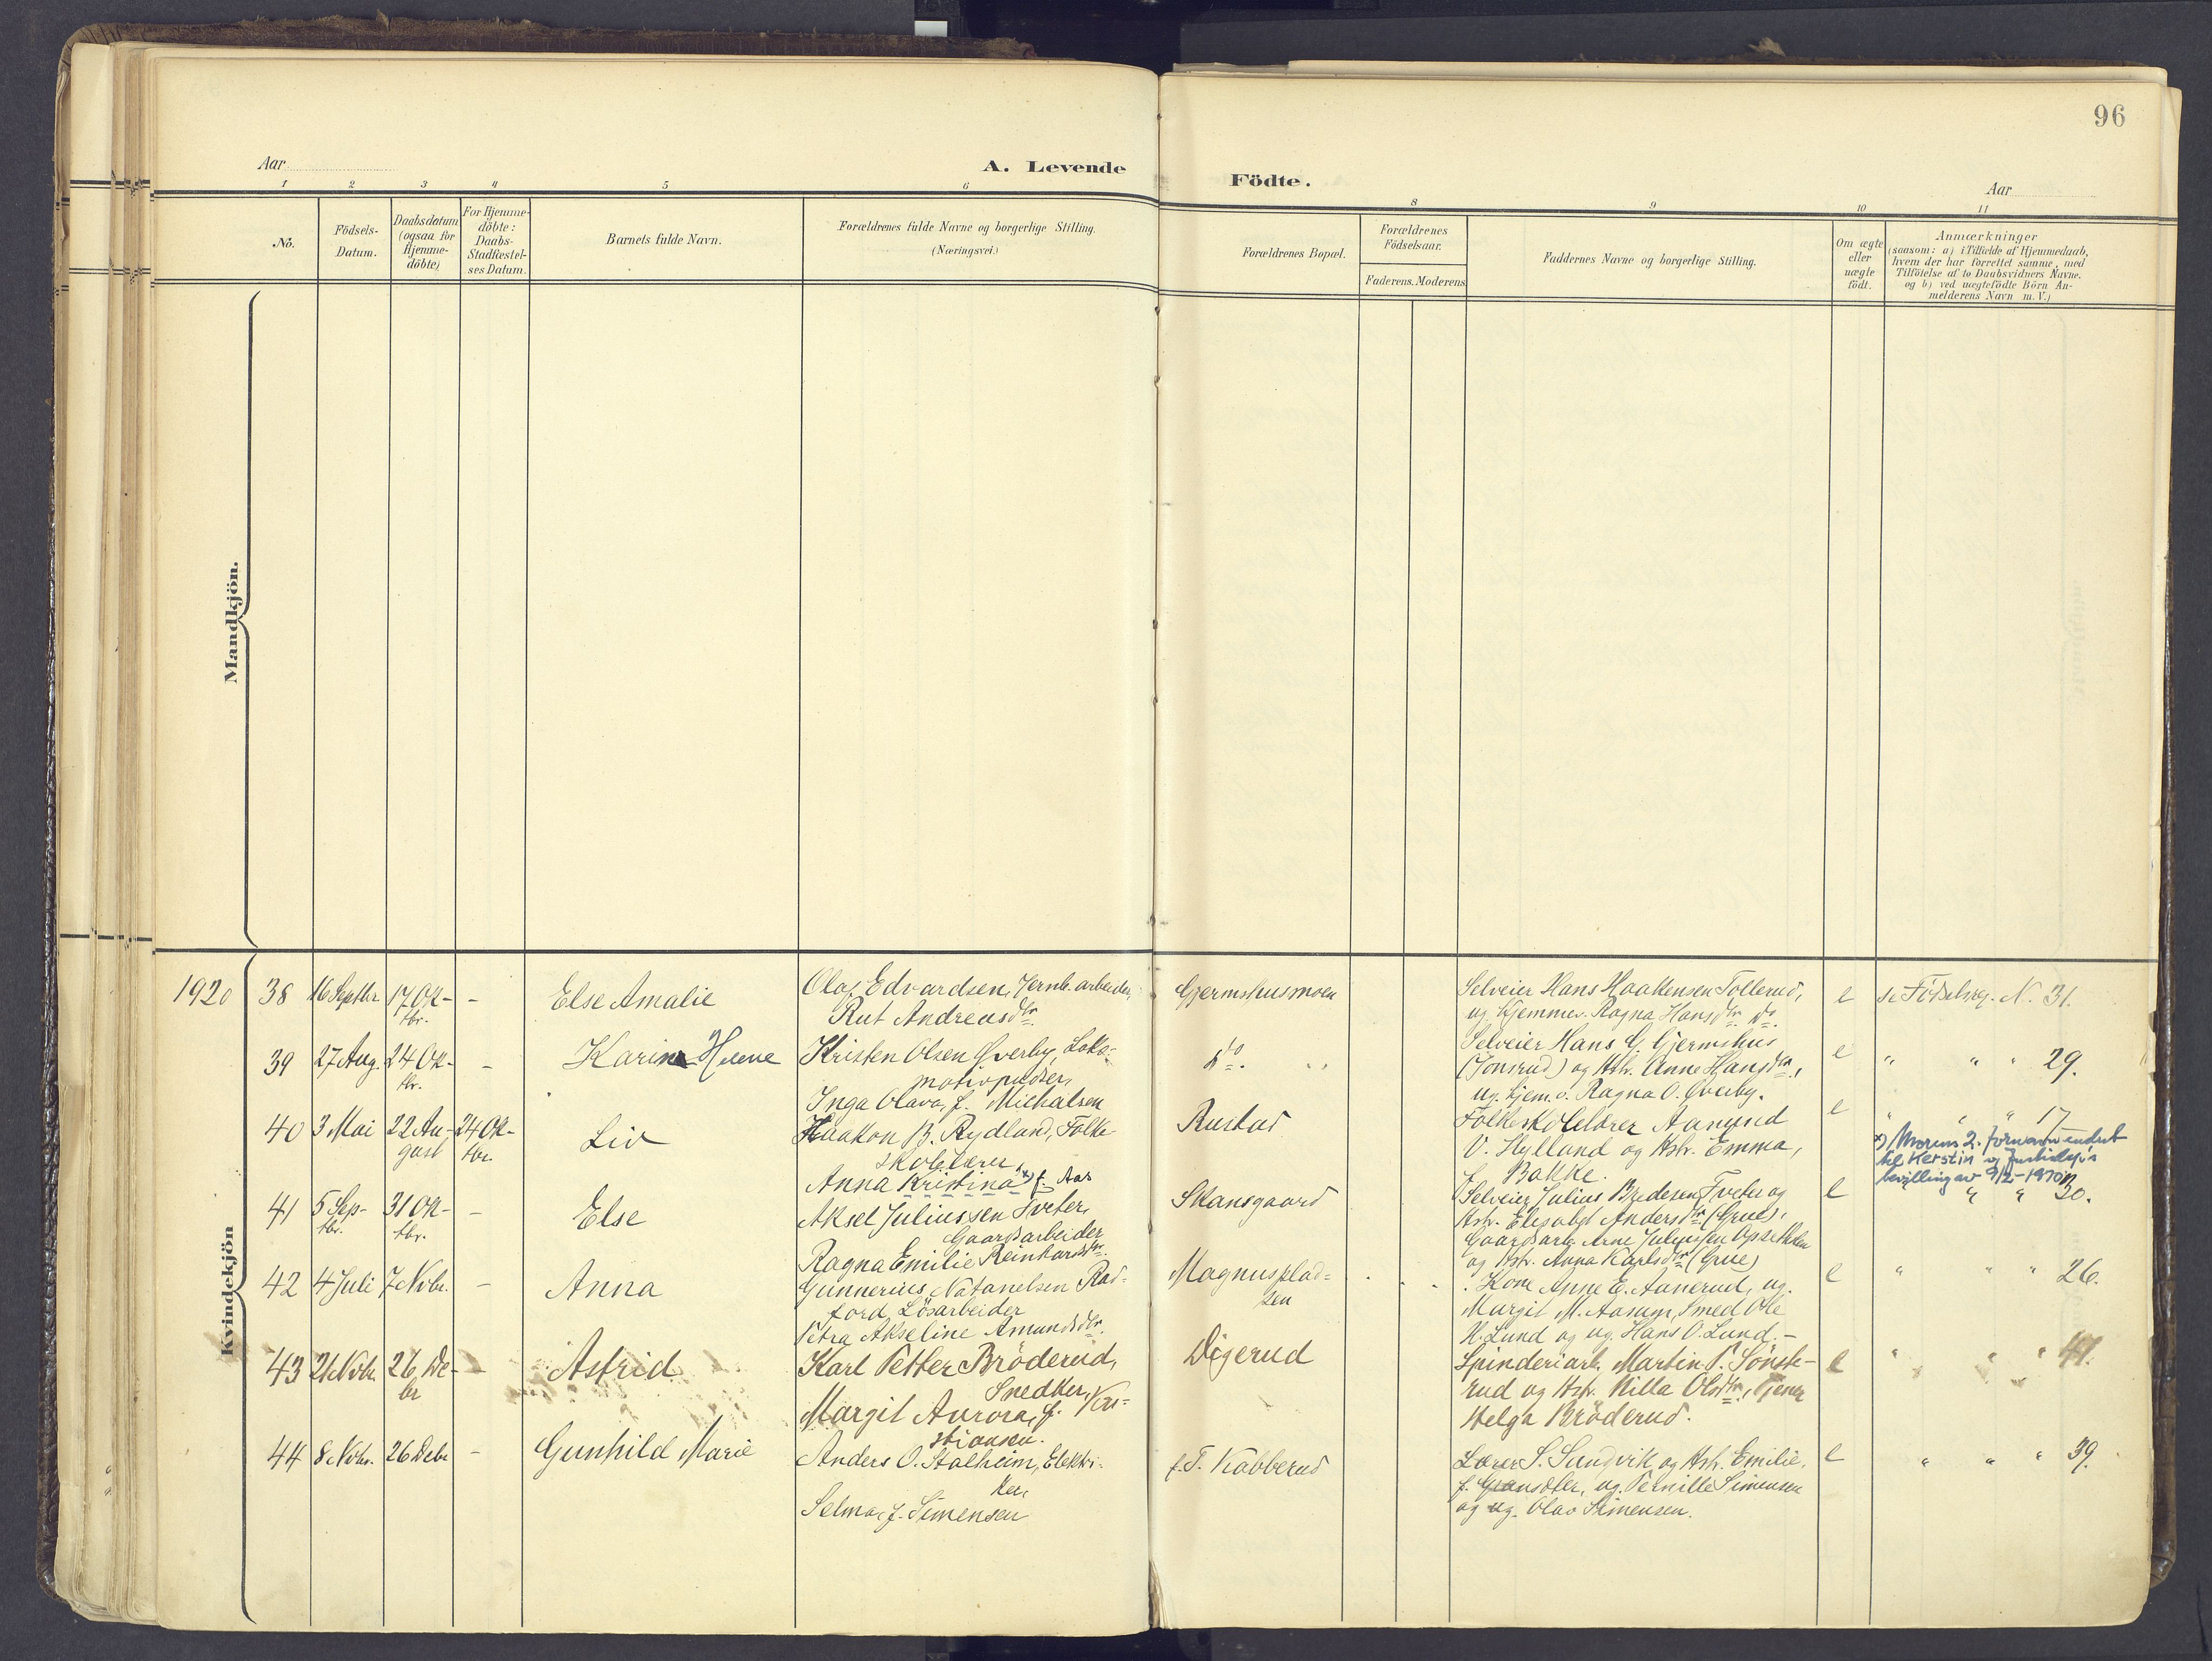 96
Aar
A. Levende Födte.
Aar
1 2 3 4 5 6 8 9 10 11
No.
Födsels-
Datum.
Daabsdatum
(ogsaa for
Hjemme-
döbte)
For Hjemme-
döbte:
Daabs-
Stadfæstel-
ses Datum.
Barnets fulde Navn.
Forældrenes fulde Navne og borgerlige Stilling.
(Næringsvei.)
Forældrenes Bopæl.
Forældrenes
Födselsaar.
Faderens. Moderens.
Faddernes Navne og borgerlige Stilling.
Om ægte
eller
uægte
födt.
Anmærkninger
(saasom: a) i Tilfælde af Hjemmedaab,
hvem der har forrettet samme, med
Tilföielse af to Daabsvidners Navne.
og b) ved uægtefödte Börn An-
melderens Navn m.V.)
Mandkjön.
Kvindekjön
1920
38 16 Septbr 17 Ok-
tbr.
-
Else Amalie
Olaf Edvardsen, Jernb. arbeider,
Rut Andreasdtr.
Gjermshusmoen
Selveier Hans Haakensen Tollerud,
ug. hjemmev. Ragna Hansdtr. do.
e
se Födselsreg. N. 31.
39 27 Aug. 24 Ok-
tbr.
-
Karin Helene
Kristen Olsen Överby, Loko-
motivpudser,
Inga Olava, f. Michalsen
do.
Selveier Hans G. Gjermshus
(Jonsrud) og Hstr. Anne Hansdtr.,
ug. hjem. v. Ragna O. Överby.
e
" " " 29.
40 3 Mai 22 Au-
gust
24 Ok-
tbr.
Liv
Haakon B. Rydland, Folke-
skolelærer,
Anna Kristina x) f. Aas
Rustad
Folkeskolelærer Aamund
V. Hylland og Hstr. Emma,
f. Bakke.
e
" " " 17
x) Morens 2. fornavn endret
til Kerstin
bevilling av 9/2-1970
41 5 Sep-
tbr.
31 Ok-
tbr.
-
Else
Aksel Juliussen Tveter,
Gaardsarbeider
Ragna Emilie Reinhardsdtr.
Skansgaard
Selveier Julius Pedersen Tveter og
Hstr. Elisabet Andersdtr (Grue),
Gaardsarb. Arne Juliussen Opsetkilen
og Hstr. Anna Karlsdtr (Grue)
e
" " 30.
42 4 Juli 7 Novbr.
-
Anna
Gunnerius Natanelsen Rad-
ford Lösarbeider
Petra Akseline Amundsdtr.
Magnusplad-
sen
Kone Anne E. Aanerud, ug.
Margit M. Aasum, Smed Ole
H. Lund og ug. Hans O. Lund. -
e
" " " 26.
43 21 Novbr. 26 De-
br
-
Astrid
Karl Petter Bröderud,
Snedker,
Margit Aurora, f. Kri-
stiansen.
Digerud
Spinderiarb. Martin P. Sönste-
rud og Hstr. Milla Olsdtr., Pjener
Helga Bröderud.
e
" " " 41.
44 8 Novbr. 26 Debr
-
Gunhild Marie
Anders O. Stalheim, Elektri-
ker,
Selma, f. Simensen
f. T. Kabberud
Lærer S. Sundvik og Hstr. Emilie,
ug. Pernille Simensen
og ug. Olav Simensen.
e
" " " 39.